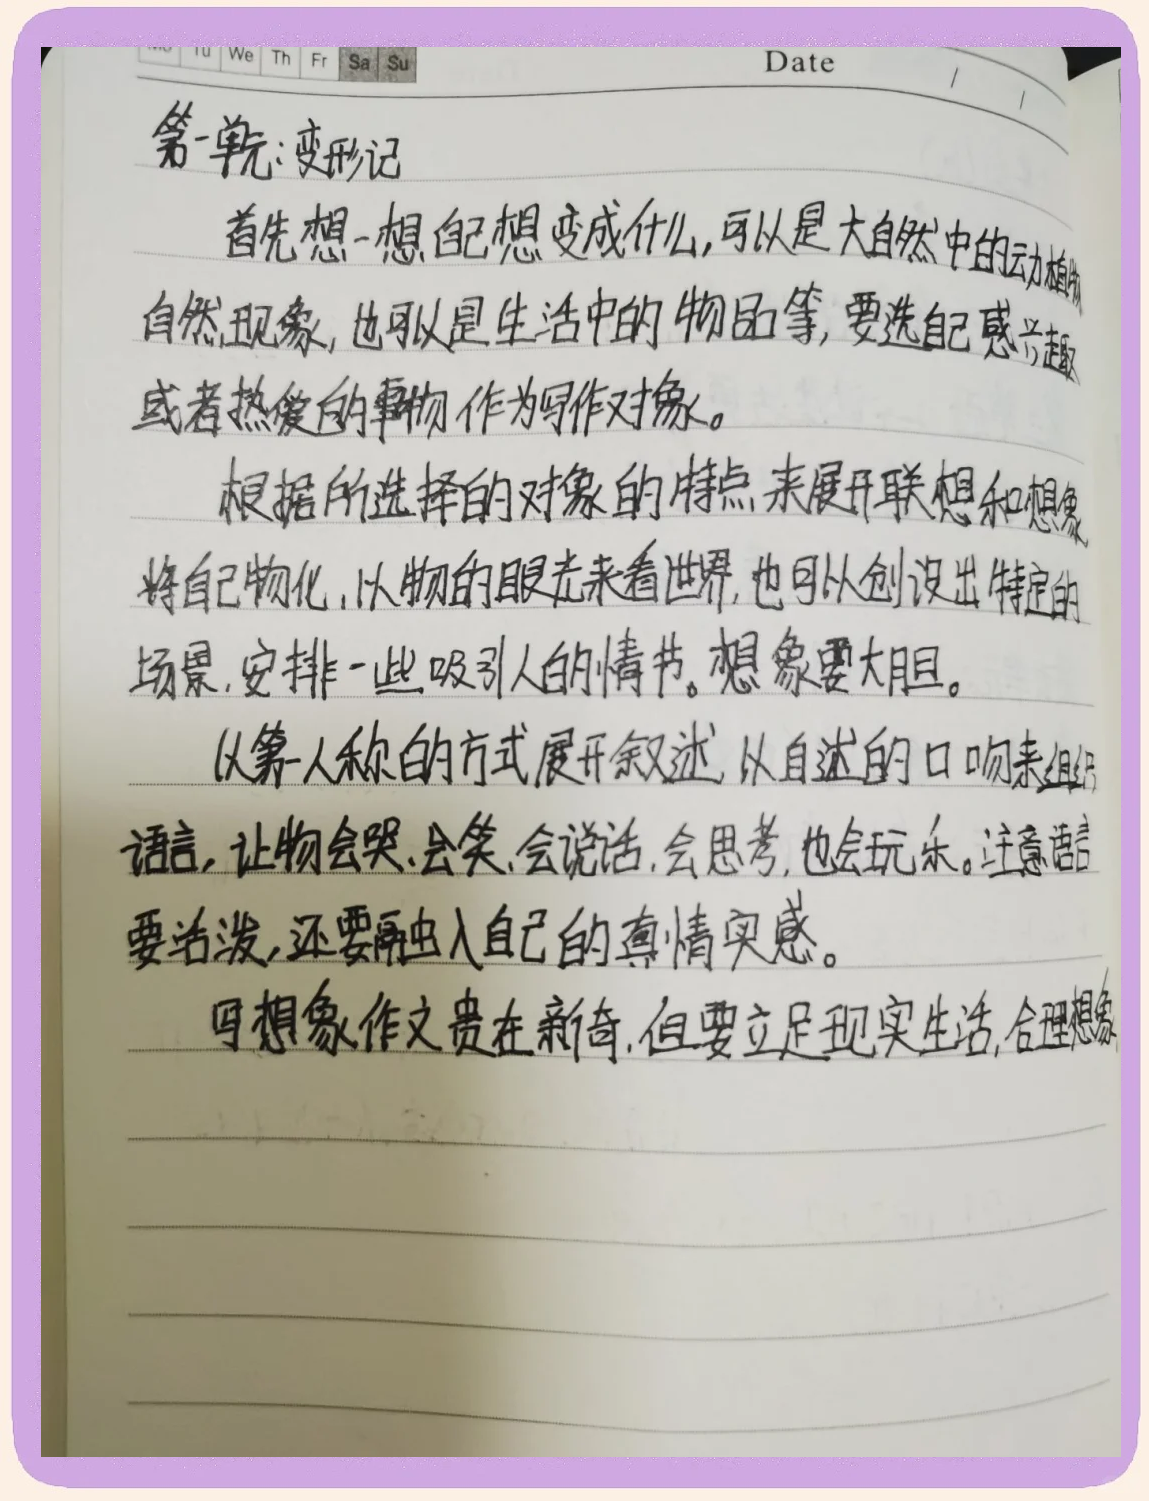 Mo Tu We Th Fr Sa Su
Date / /
第一单元：变形记
首先想一想自己想变成什么，可以是大自然中的动植物
自然现象，也可以是生活中的物品等，要选自己感兴趣
或者热爱的事物作为写作对象。
根据所选择的对象的特点来展开联想和想象
将自己物化，以物的眼光来看世界，也可以创设出特定的
场景，安排一些吸引人的情节。想象要大胆。
以第一人称的方式展开叙述，以自述的口吻来组织
语言，让物会哭、会笑、会说话，会思考，也会玩乐。注意语言
要活泼，还要融入自己的真情实感。
写想象作文贵在新奇，但要立足现实生活，合理想象